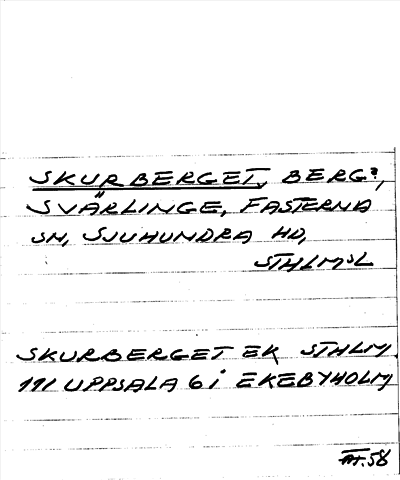 SKURBERGET, BERG?,
SVÄRLINGE, FASTERNA
SN, SJUHUNDRA HD,
STHLMSL
SKURBERGET EK STHLM
111 UPPSALA 6 i EKEBYHOLM
58